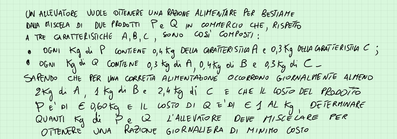 UN ALLEVATORE VUOLE OTTENERE UNA RAZIONE ALIMENTARE PER BESTIAME
DALLA MISCELA DI DUE PRODOTTI P e Q IN COMMERCIO CHE, RISPETTO
A TRE CARATTERISTICHE A, B, C, SONO COSÌ COMPOSTI:
• OGNI Kg di P CONTIENE 0,4 Kg DELLA CARATTERISTICA A e 0,3 Kg DELLA CARATTERISTICA C;
• OGNI Kg DI Q CONTIENE 0,5 Kg di A, 0,4 Kg di B e 0,5 Kg di C.
SAPENDO CHE PER UNA CORRETTA ALIMENTAZIONE OCCORRONO GIORNALMENTE ALMENO
2 Kg di A, 1 Kg di B e 2,4 Kg di C E CHE IL COSTO DEL PRODOTTO
P E' DI € 0,60 Kg E IL COSTO DI Q E' DI € 1 AL Kg, DETERMINARE
QUANTI Kg di P e Q L'ALLEVATORE DEVE MISCELARE PER
OTTENERE UNA RAZIONE GIORNALIERA DI MINIMO COSTO